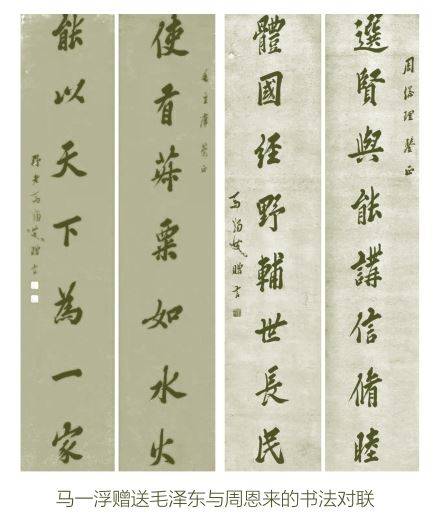 選賢與能講信脩睦
周總理鑒正
體國經野輔世長民
使有菽粟如水火
毛主席鑒正
能以天下為一家
马一浮赠送毛泽东与周恩来的书法对联